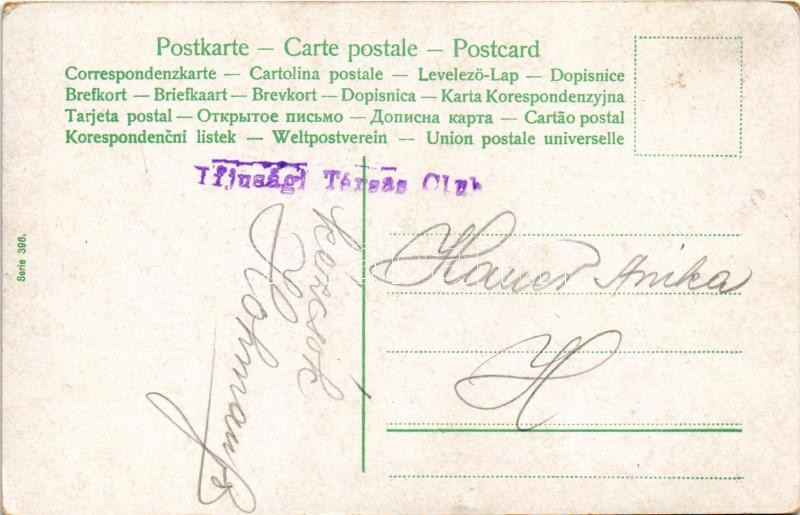 Postkarte – Carte postale – Postcard
Correspondenzkarte – Cartolina postale – Levelező-Lap – Dopisnice
Brefkort – Briefkaart – Brevkort – Dopisnica – Karta Korespondenzyjna
Tarjeta postal – Открытое письмо – Дописна карта – Cartão postal
Korespondenční listek – Weltpostverein – Union postale universelle
Ifjusági Társas Club
Serie 396.
Hauer Anika
H